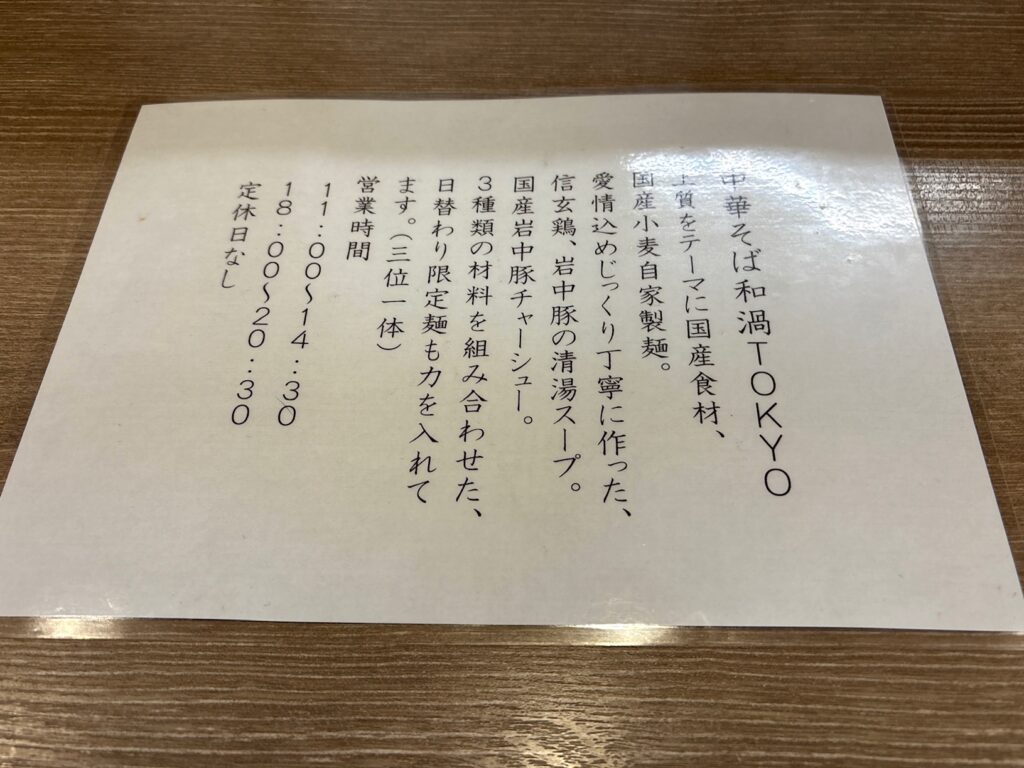 中華そば和渦TOKYO
上質をテーマに国産食材、
国産小麦自家製麺。
愛情込めじっくり丁寧に作った、
信玄鶏、岩中豚の清湯スープ。
国産岩中豚チャーシュー。
3種類の材料を組み合わせた、
日替わり限定麺も力を入れて
ます。（三位一体）
営業時間
11:00〜14:30
18:00〜20:30
定休日なし